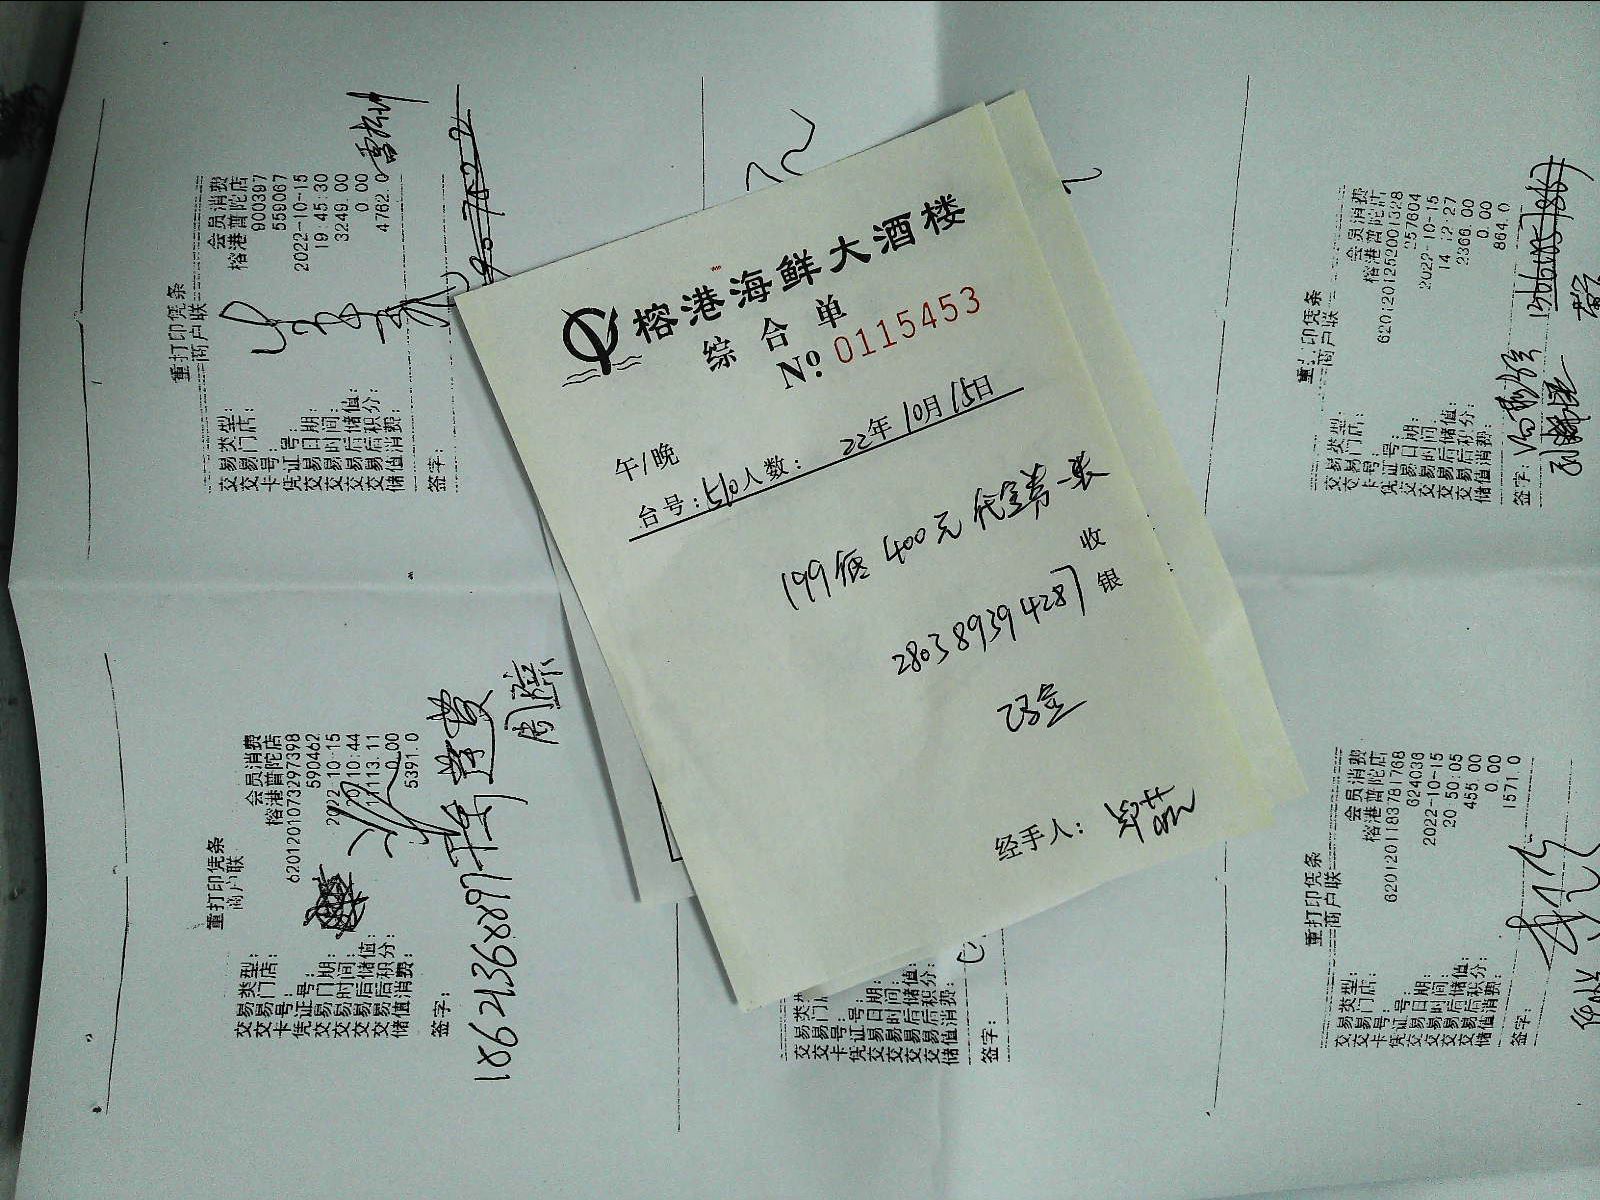 榕港海鲜大酒楼
综合单
No. 0115453
午/晚
台号:510人数: 22年10月15日
199抵400元代金券一张
280389394287
收银
经手人:
重打印凭条
商户联
交易类型: 会员消费
交易门店: 榕港普陀店
卡号: 900397
凭证号: 559067
交易日期: 2022-10-15
交易时间: 19:45:30
交易后储值: 3249.00
交易后积分: 0.00
储值消费: 4762.0
签字:
重打印凭条
商户联
交易类型: 会员消费
交易门店: 榕港普陀店
卡号: 6201201252007328
凭证号: 257604
交易日期: 2022-10-15
交易时间: 14:12:27
交易后储值: 2366.00
交易后积分: 0.00
储值消费: 864.0
签字:
重打印凭条
商户联
交易类型: 会员消费
交易门店: 榕港普陀店
卡号: 6201201073297398
凭证号: 590462
交易日期: 2022-10-15
交易时间: 10:44
交易后储值: 11113.11
交易后积分: 0.00
储值消费: 5391.0
签字:
18621368897
周
交易类
交易门
卡号:
凭证号:
交易日期:
交易时间:
交易后储值:
交易后积分:
储值消费:
签字:
重打印凭条
商户联
交易类型: 会员消费
交易门店: 榕港普陀店
卡号: 6201201183781768
凭证号: 624036
交易日期: 2022-10-15
交易时间: 20:50:05
交易后储值: 455.00
交易后积分: 0.00
储值消费: 1571.0
签字: